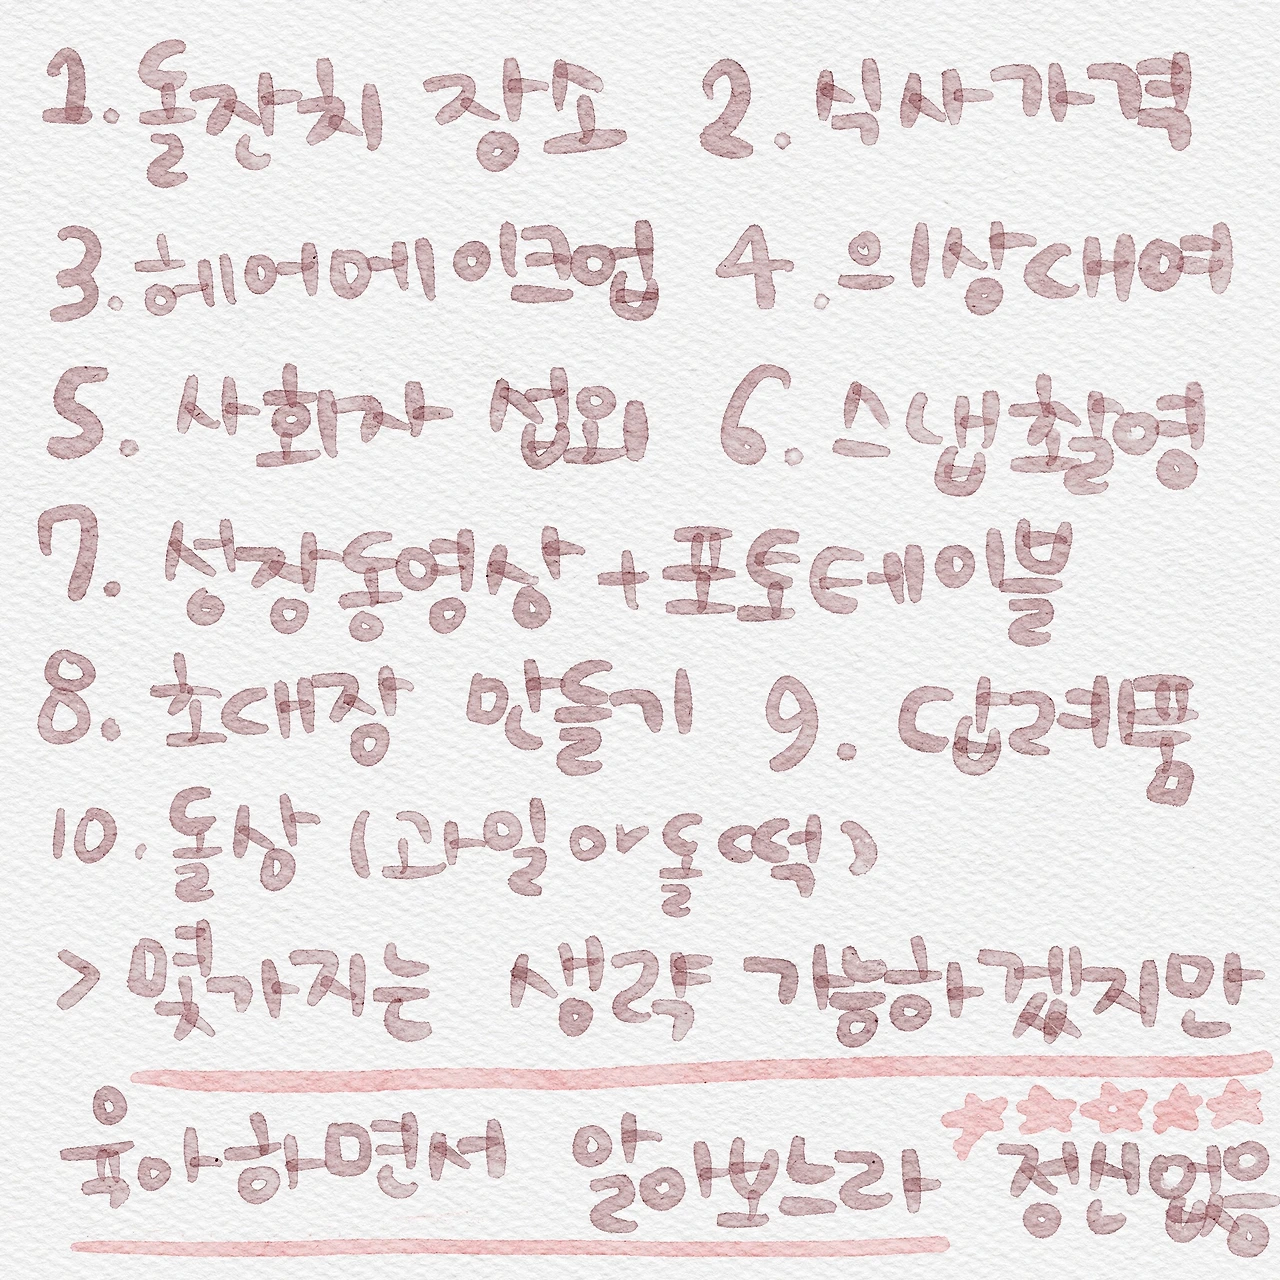 1. 돌잔치 장소 2. 식사가격
3. 헤어메이크업 4. 의상대여
5. 사회자 섭외 6. 스냅촬영
7. 성장동영상+포토테이블
8. 초대장 만들기 9. 답례품
10. 돌상 (과일아돌떡)
> 몇가지는 생략 가능하겠지만
육아하면서 알아보느라 정신없음